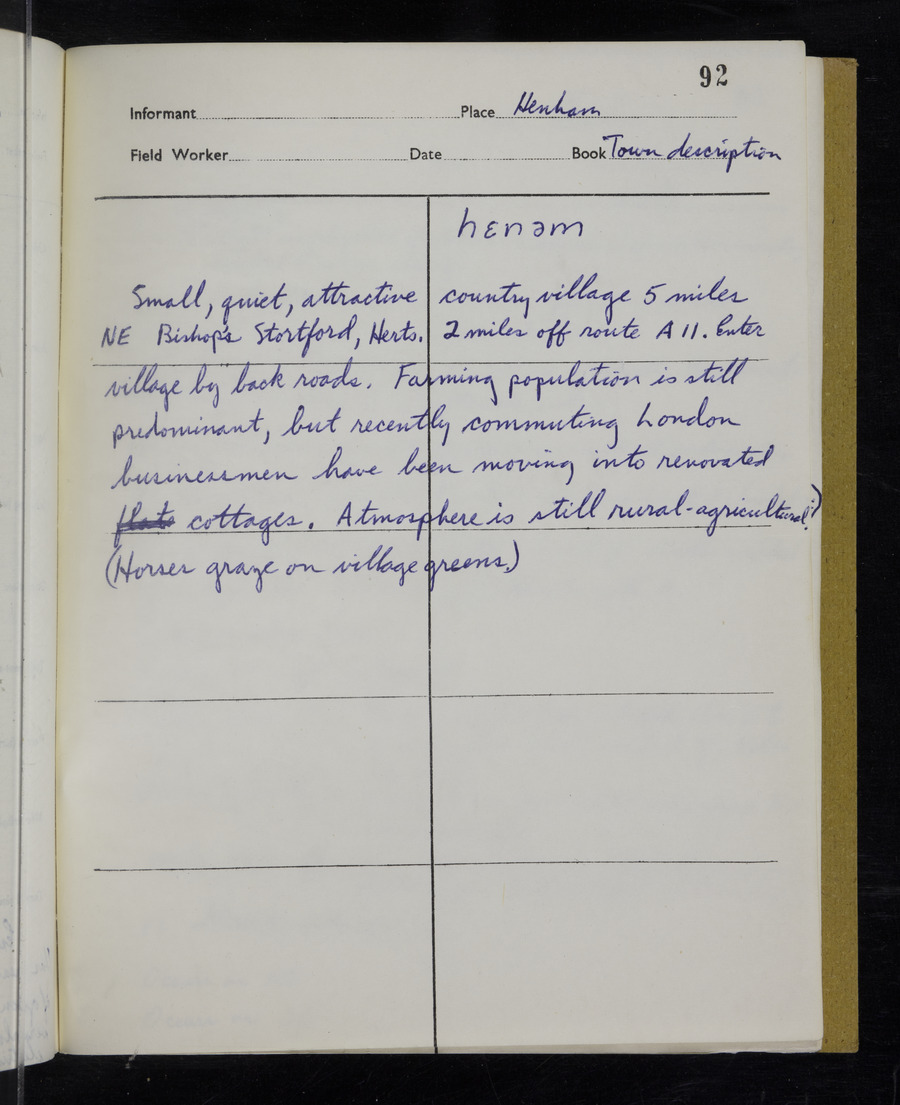 92
Informant Place Henham
Field Worker Date Book Town description
hɛnəm
Small, quiet, attractive country village 5 miles
NE Bishop's Stortford, Herts. 2 miles off route A11. Enter
village by back roads. Farming population is still
predominant, but recently commuting London
businessmen have been moving into renovated
flats cottages. Atmosphere is still rural-agricultural.
(Horses graze on village greens.)